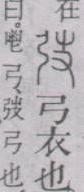 在
弢弓衣也
曰。鬯弓、弢弓也